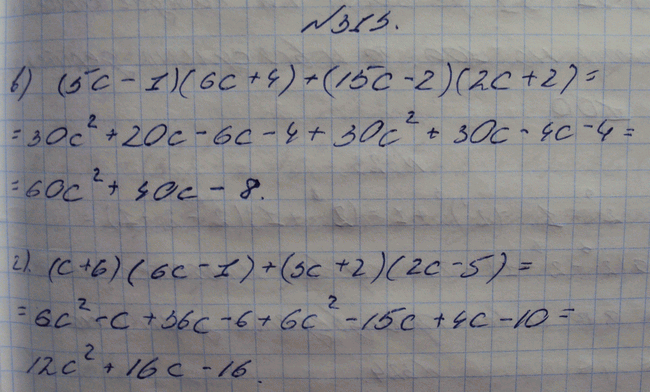 №313.
в) (5c - 1)(6c + 4) + (15c - 2)(2c + 2) =
= 30c² + 20c - 6c - 4 + 30c² + 30c - 4c - 4 =
= 60c² + 40c - 8.
г). (c + 6)(6c - 1) + (3c + 2)(2c - 5) =
= 6c² - c + 36c - 6 + 6c² - 15c + 4c - 10 =
12c² + 16c - 16.